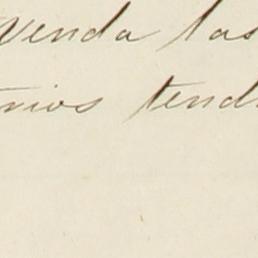 venda las
nios tend